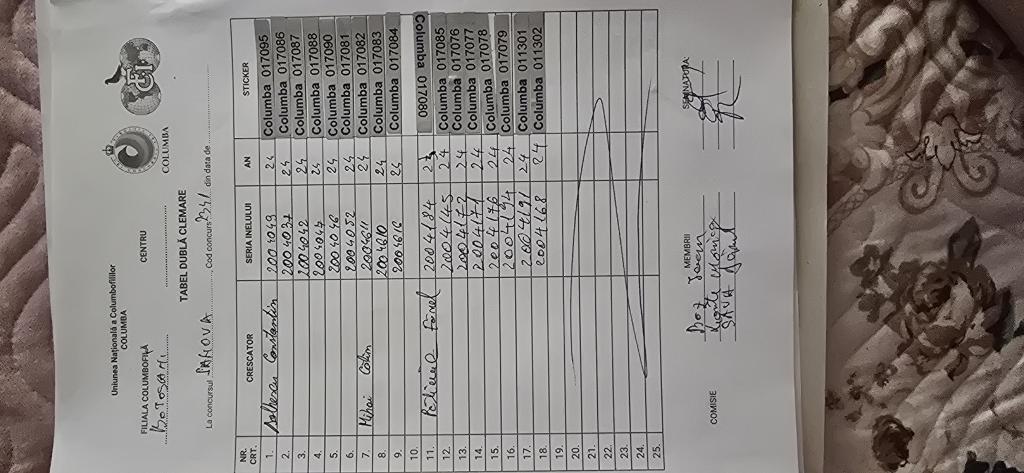 Uniunea Națională a Columbofililor
COLUMBA
COLUMBA
FILIALA COLUMBOFILĂ CENTRU
BOTOSANI
TABEL DUBLĂ CLEMARE
La concursul Cod concurs din data de
NR. CRT. CRESCATOR SERIA INELULUI AN STICKER
1. Constantin 2001049 24 Columba 017095
2. 2004037 24 Columba 017086
3. 2004042 24 Columba 017087
4. 2004047 24 Columba 017088
5. 2004046 24 Columba 017090
6. 2004052 24 Columba 017081
7. Mihai 2004611 24 Columba 017082
8. 2004610 24 Columba 017083
9. 2004616 24 Columba 017084
10.
11. 2004184 23 Columba 017080
12. 2004145 24 Columba 017085
13. 2004172 24 Columba 017076
14. 2004171 24 Columba 017077
15. 2004176 24 Columba 017078
16. 2004194 24 Columba 017079
17. 2004191 24 Columba 011301
18. 2004168 24 Columba 011302
19.
20.
21.
22.
23.
24.
25.
COMISIE MEMBRII SEMNATURA:
SAVA